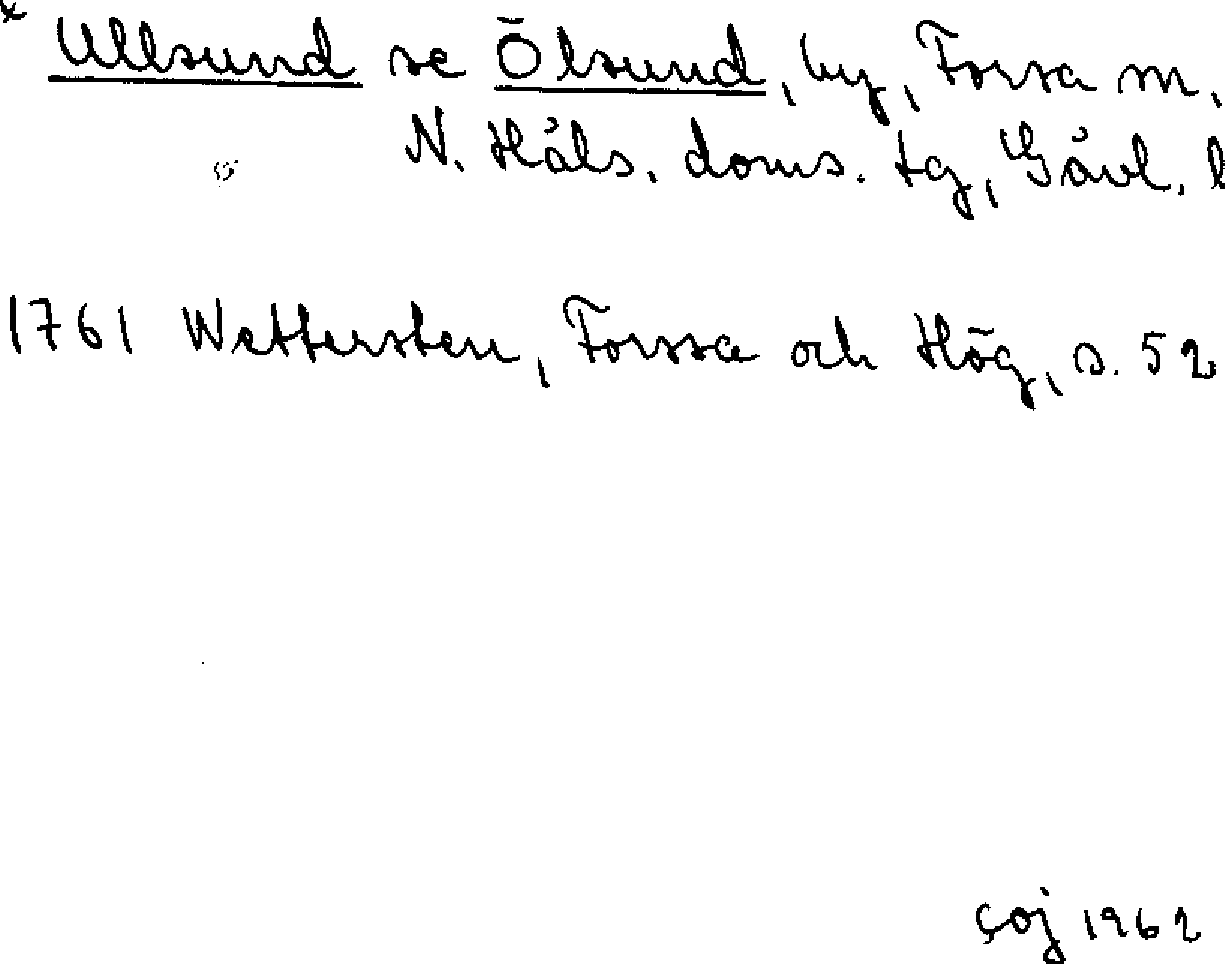 * Ullsund se Ölsund, by, Forsa sn,
N. Häls. doms. tg, Gävl. l
1761 Wettersten, Forssa och Hög, s. 52
soj 1962